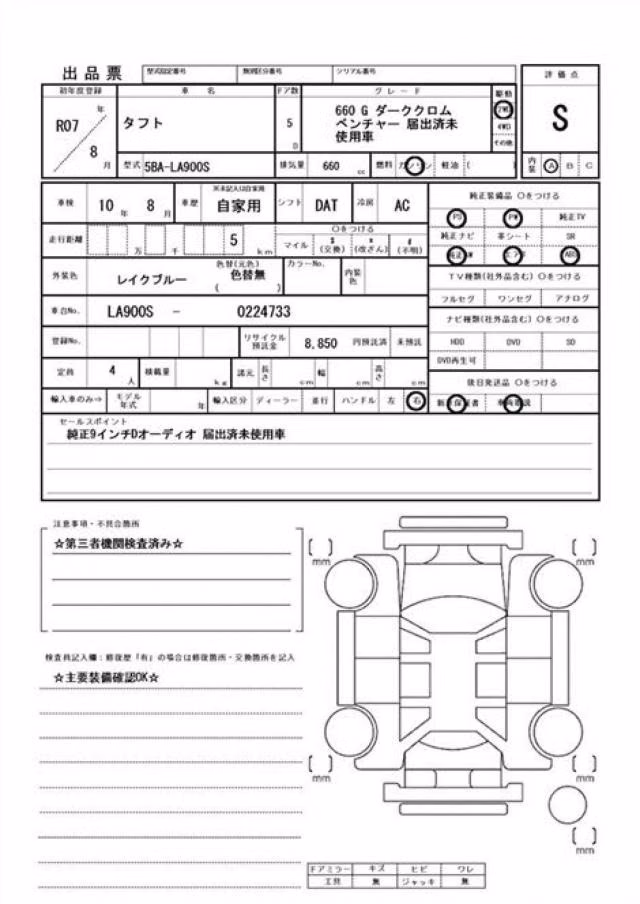 出品票 型式指定番号 類別区分番号 シリアル番号
評価点
初年度登録 車名 ドア数 グレード 駆動
R07 年 8 月
タフト
5 D
660 G ダーククロム
ベンチャー 届出済未
使用車
2WD
4WD
その他
S
型式 5BA-LA900S 排気量 660 cc 燃料 ガソリン 軽油 ( )
内装 A B C
車検 10 年 8 月 車歴 ※未記入は自家用 自家用 シフト DAT 冷房 AC
純正装備品 ○をつける
PS PW 純正TV
走行距離 万 千 5 km
○をつける
マイル $(交換) *(改ざん) #(不明)
純正ナビ 革シート SR
純正AW エアB ABS
外装色 レイクブルー 色替(元色) 色替無 ( ) カラーNo. 内装色
TV種類(社外品含む) ○をつける
フルセグ ワンセグ アナログ
車台No. LA900S - 0224733
ナビ種類(社外品含む) ○をつける
HDD DVD SD
DVD再生可
登録No. リサイクル預託金 8,850 円預託済 未預託
定員 4 人 積載量 kg 諸元 長さ cm 幅 cm 高さ cm
後日発送品 ○をつける
輸入車のみ⇒ モデル年式 年 輸入区分 ディーラー 並行 ハンドル 左 右
新車保証書
セールスポイント
純正9インチDオーディオ 届出済未使用車
注意事項・不具合箇所
☆第三者機関検査済み☆
検査員記入欄：修復歴「有」の場合は修復箇所・交換箇所を記入
☆主要装備確認OK☆
[ ] mm [ ] mm
[ ] mm [ ] mm
[ ] mm
Fドアミラー キズ ヒビ ワレ
工具 無 ジャッキ 無